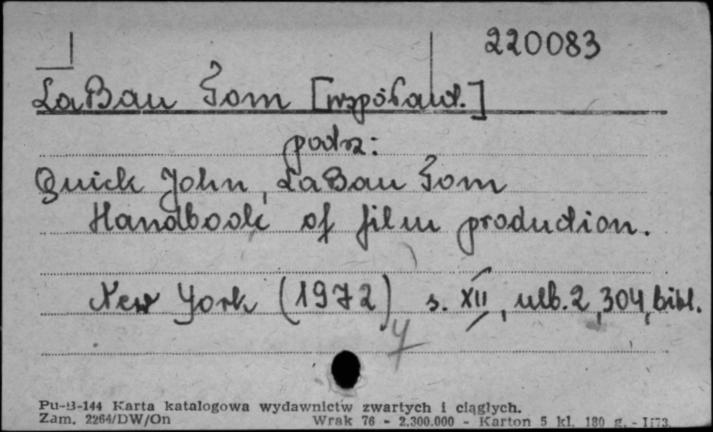 220083
LaBau Tom [współaut.]
patrz:
Quick John, LaBau Tom
Handbook of film production.
New York (1972) s. XII, nlb. 2, 304, bibl.
4
Pu-B-144 Karta katalogowa wydawnictw zwartych i ciągłych.
Zam. 2264/DW/On Wrak 76 - 2.300.000 - Karton 5 kl. 180 g. - I/73.